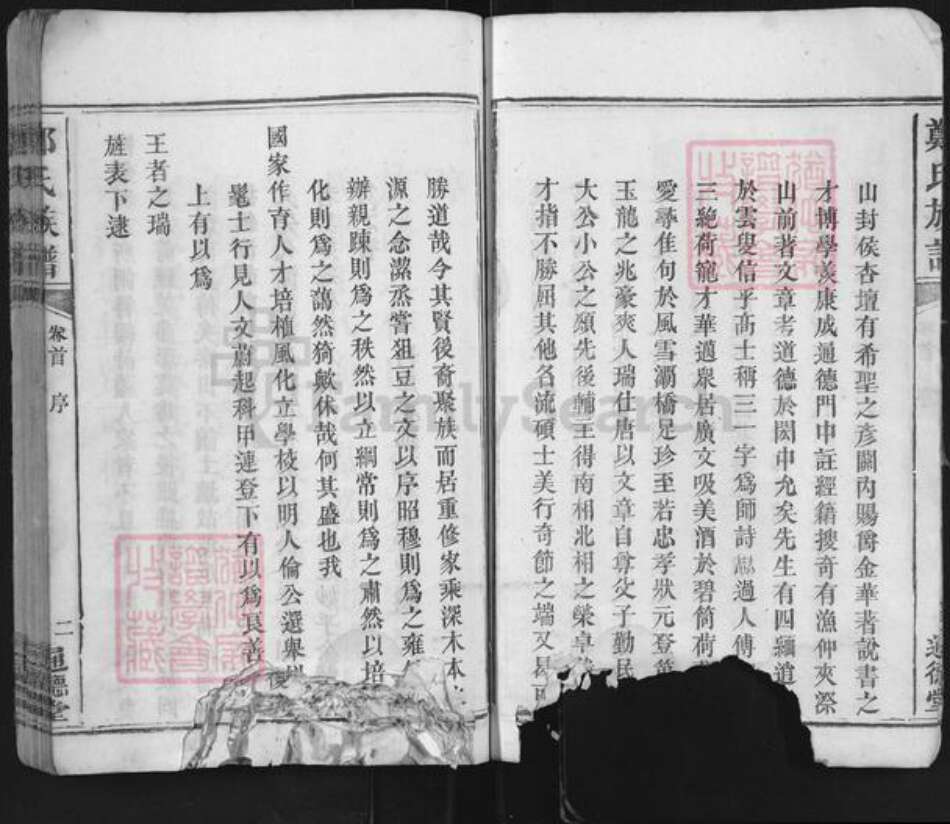 鄭氏族譜
通德堂
山封侯杏壇有希聖之彥關內賜爵金華著說書之
才博學羨康成通德門中註經籍搜奇有漁仲夾深
山前著文章考道德於閩中允矣先生有四鑷道
於雲叟信乎高士稱三一字為師詩思過人傅
三絕荷籠才華邁眾居廣文吸美酒於碧筒荷
愛尋隹句於風雪灞橋足珍至若忠孝狀元登第
玉龍之兆豪爽人瑞仕唐以文章自尊父子勤民
大公小公之頌先後輔王得南相北相之榮卓
才指不勝屈其他名流碩士美行奇節之端又
勝道哉今其賢後裔聚族而居重修家乘深木本
源之念潔烝嘗俎豆之文以序昭穆則為之雍
辦親踈則為之秩然以立綱常則為之肅然以培
化則為之藹然猗歟休哉何其盛也我
國家作育人才培植風化立學校以明人倫公選舉
髦士行見人文蔚起科甲連登下有以為良善
上有以為
王者之瑞
旌表下逮
鄭氏族譜
卷首 序
二
通德堂
FamilySearch